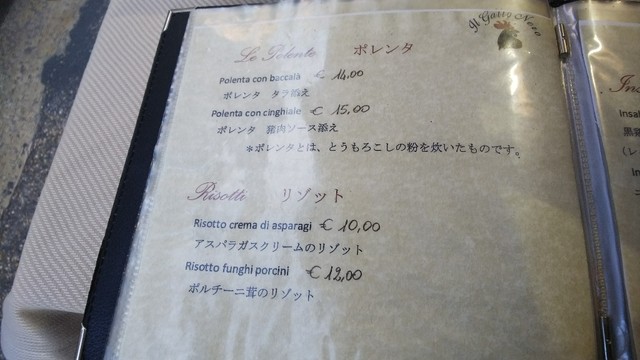 Il Gatto Nero
Le Polente ポレンタ
Polenta con baccalà € 14.00
ポレンタ タラ添え
Polenta con cinghiale € 15.00
ポレンタ 猪肉ソース添え
*ポレンタとは、とうもろこしの粉を炊いたものです。
Risotti リゾット
Risotto crema di asparagi € 10,00
アスパラガスクリームのリゾット
Risotto funghi porcini € 12,00
ポルチーニ茸のリゾット